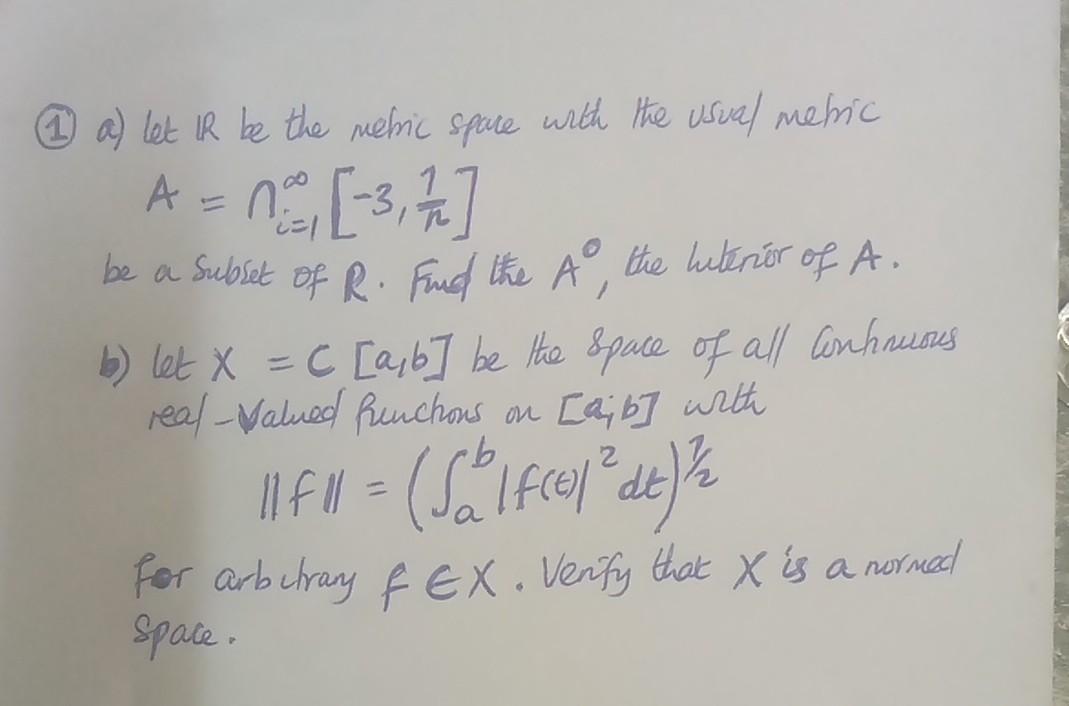 ① a) let ℝ be the metric space with the usual metric
A = ∩_{i=1}^{∞} [-3, 1/n]
be a subset of R. Find the A°, the Interior of A.
b) let X = C [a,b] be the space of all Continuous
real-Valued functions on [a,b] with
||f|| = (∫_a^b |f(t)|² dt)^{1/2}
for arbitrary f ∈ X. Verify that X is a normed
Space.